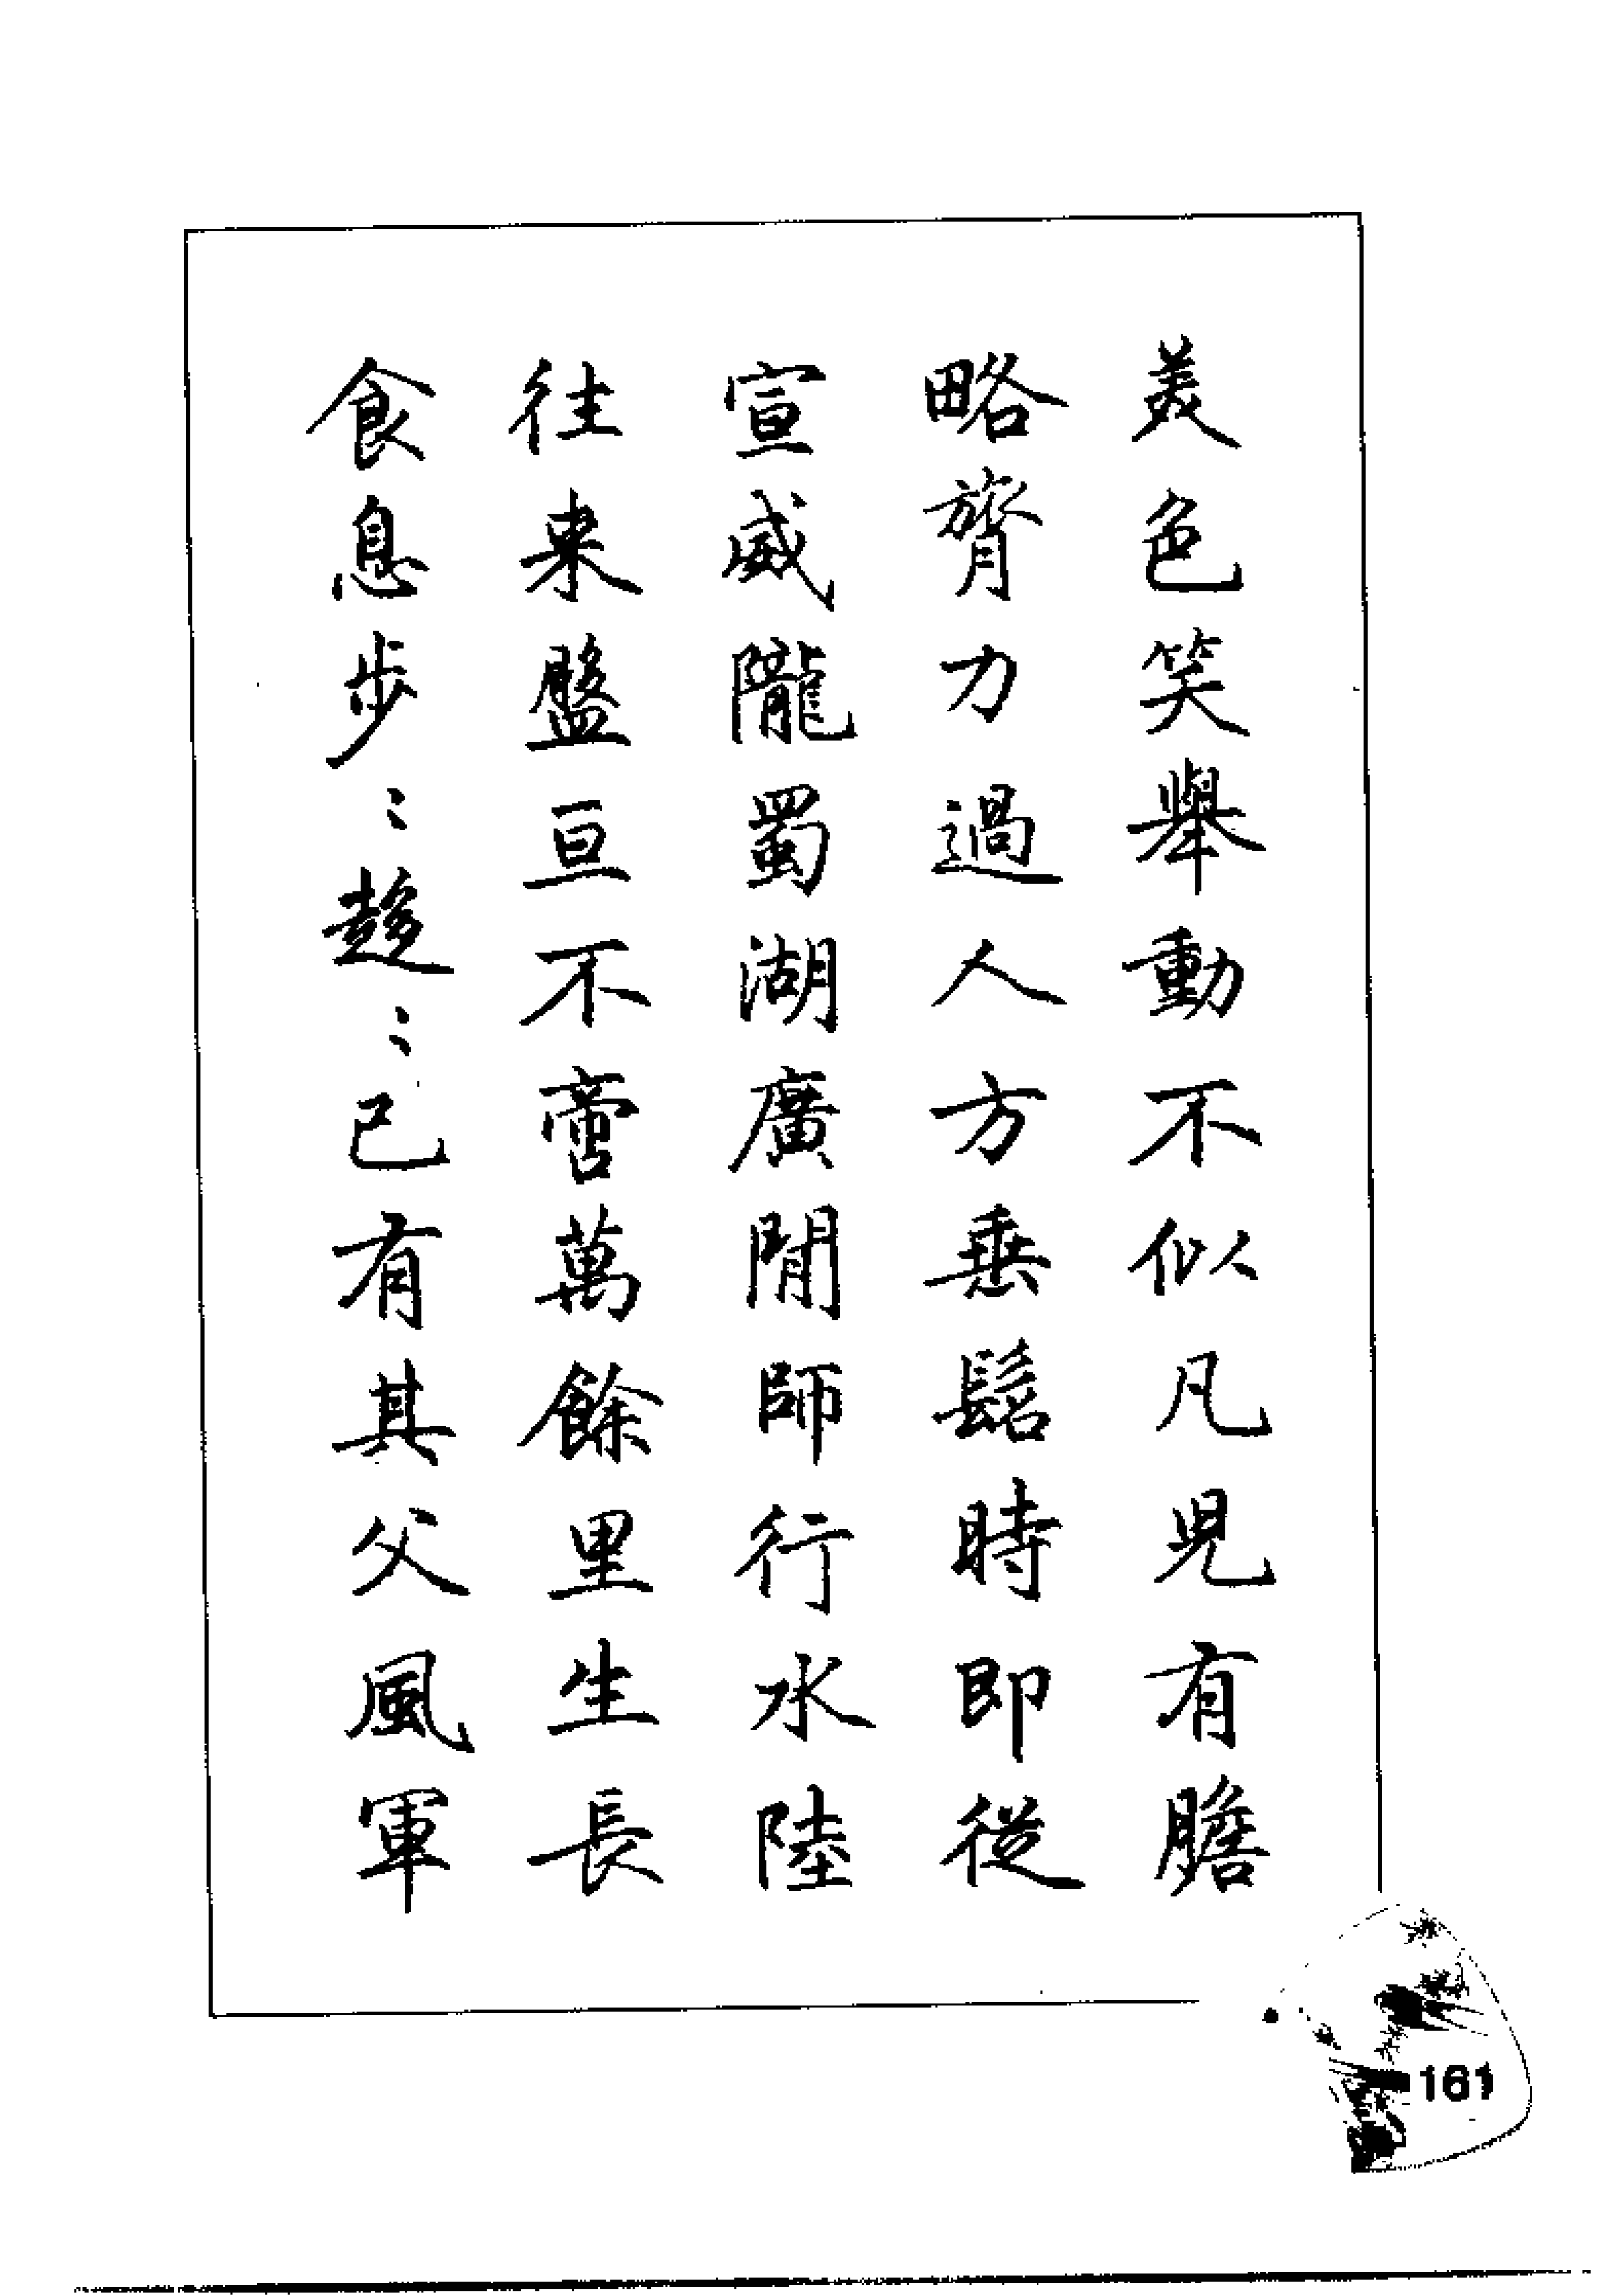 美色笑舉動不似凡兒有膽
略膂力過人方垂髫時即從
宣威隴蜀湖廣閒師行水陸
往来盤亘不啻萬餘里生長
食息步〻趨〻已有其父風軍
161